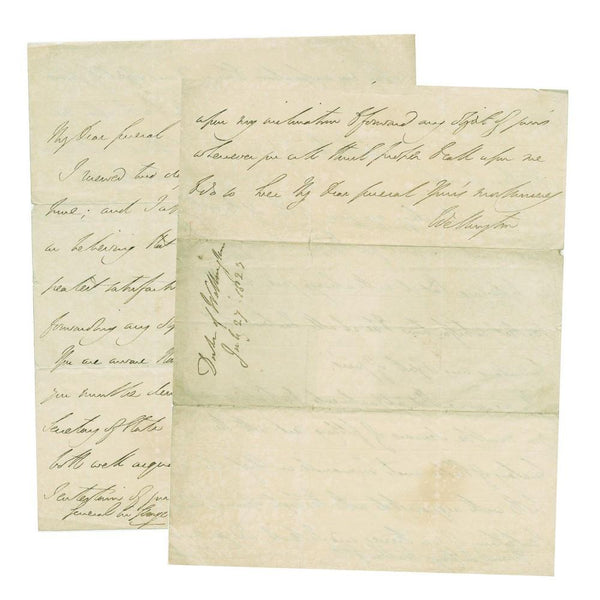 My Dear General
I received two
time; and I
in believing that
greatest satisfact
forwarding any
You are aware tha
you must be
Secretary of State
both well acqua
I entertain of you
General Sir George
upon my inclination to forward any object of yours
whenever you will think proper to call upon me
to do so here My Dear General Yours most sincerely
Wellington
Duke of Wellington
July 27. 1823